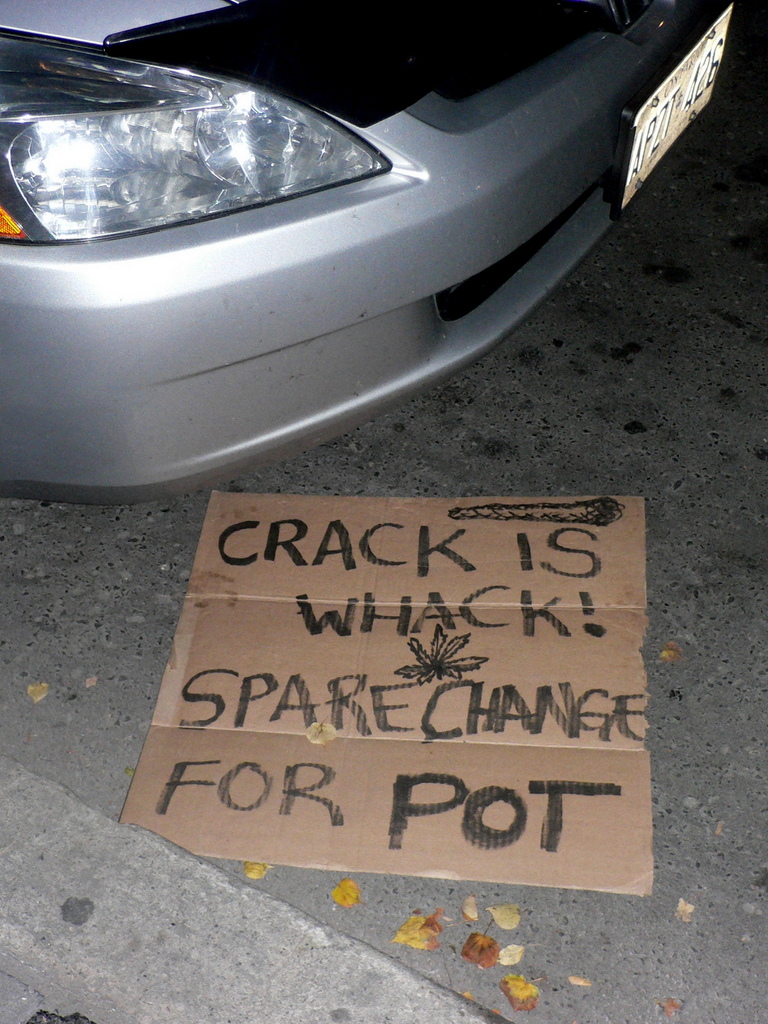 ONTARIO
APZT 426
CRACK IS
WHACK!
SPARE CHANGE
FOR POT